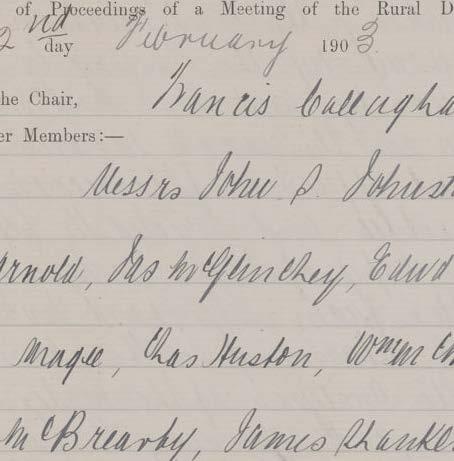 of Proceedings of a Meeting of the Rural D
2nd day February 1903.
he Chair, Francis Callagha
er Members:—
Messrs John S. Johnst
Arnold, Jas McGlinchey, Edwd
Magee, Chas Huston, Wm Mc
McBrearty, James